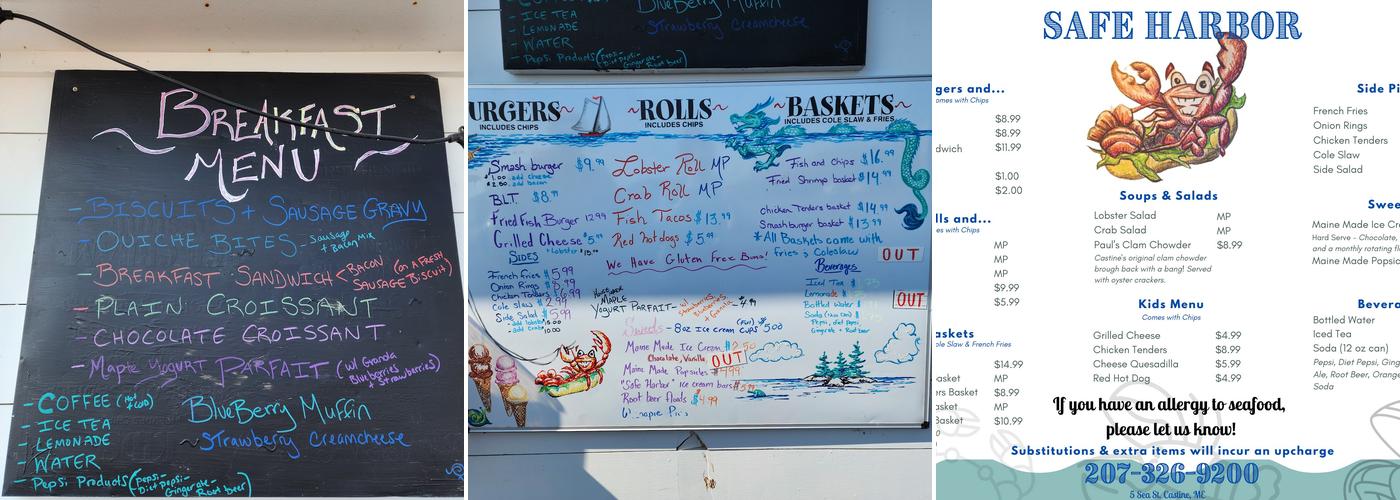 BREAKFAST
MENU
- BISCUITS + SAUSAGE GRAVY
- QUICHE BITES - Sausage
+ Bacon Mix
- BREAKFAST SANDWICH < BACON
SAUSAGE (ON A FRESH
BISCUIT)
- PLAIN CROISSANT
- CHOCOLATE CROISSANT
- Maple Yogurt PARFAIT (w/ Granola
Blueberries
+ Strawberries)
- COFFEE (Hot
- ICE TEA
- LEMONADE
- WATER
- Pepsi Products (Pepsi-
Diet pepsi-
Gingerale-
Root beer)
BlueBerry Muffin
~Strawberry Creamcheese
- ICE TEA
- LEMONADE
- WATER
- Pepsi Products (Pepsi-
Diet pepsi-
Gingerale-
Root beer)
BlueBerry Muffin
Strawberry Creamcheese
URGERS~
INCLUDES CHIPS
Smash burger $9.99
$1.00 add cheese
$2.50 add bacon
BLT $8.99
Fried Fish Burger 12.99
Grilled Cheese $5.99
+Lobster
SIDES
French fries $5.99
Onion Rings
Chicken Tenders
Cole slaw $2.99
Side Salad $5.99
+ add lobster
+ add crab
~ROLLS~
INCLUDES CHIPS
Lobster Roll MP
Crab Roll MP
Fish Tacos $13.99
Red hot dogs $5.99
We Have Gluten Free Buns!
~BASKETS~
INCLUDES COLE SLAW & FRIES
Fish and Chips $16.99
Fried Shrimp basket $14.99
chicken Tenders basket $14.99
Smashburger basket $13.99
*All Baskets come with
fries & Coleslaw
OUT
Beverages
Iced Tea $
Lemonade $
Bottled Water $
Soda (12oz can) $
Pepsi, diet pepsi,
Gingerale + Root beer
OUT
MAPLE
YOGURT PARFAIT - w/ Strawberries,
Blueberries
+ Granola $4.99
Sweets - 8oz Ice cream cups $5.00
Maine Made Ice Cream $2.50
Chocolate, Vanilla, OUT
Maine Made Popsicles
"Safe Harbor" ice cream bars
Root beer floats $4.99
SAFE HARBOR
gers and...
omes with Chips
$8.99
$8.99
dwich $11.99
$1.00
$2.00
lls and...
es with Chips
MP
MP
MP
$9.99
$5.99
askets
ole Slaw & French Fries
$14.99
asket MP
ers Basket $8.99
asket MP
asket $10.99
Soups & Salads
Lobster Salad MP
Crab Salad MP
Paul's Clam Chowder $8.99
Castine's original clam chowder
brough back with a bang! Served
with oyster crackers.
Kids Menu
Comes with Chips
Grilled Cheese $4.99
Chicken Tenders $8.99
Cheese Quesadilla $5.99
Red Hot Dog $4.99
Side Pi
French Fries
Onion Rings
Chicken Tenders
Cole Slaw
Side Salad
Swee
Maine Made Ice Cre
Hard Serve - Chocolate,
and a monthly rotating fl
Maine Made Popsic
Bevera
Bottled Water
Iced Tea
Soda (12 oz can)
Pepsi, Diet Pepsi, Ging
Ale, Root Beer, Orange
Soda
If you have an allergy to seafood,
please let us know!
Substitutions & extra items will incur an upcharge
207-326-9200
5 Sea St. Castine, ME